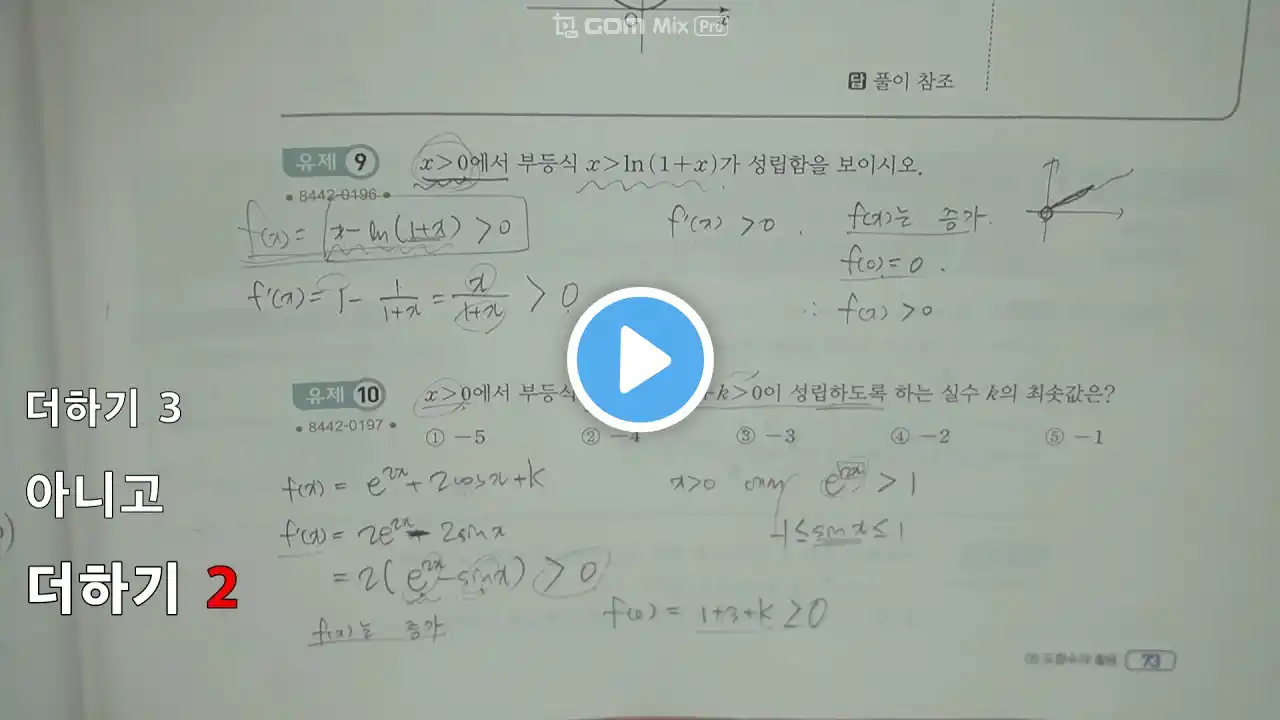 GOM Mix Pro
O x
답 풀이 참조
유제 9 x>0에서 부등식 x>ln(1+x)가 성립함을 보이시오.
8442-0196
f(x)= x-ln(1+x) >0
f'(x) >0. f(x)는 증가.
f(0)=0.
f'(x)= 1- 1/(1+x) = x/(1+x) > 0
∴ f(x) >0
유제 10 x>0에서 부등식 k>0이 성립하도록 하는 실수 k의 최솟값은?
8442-0197
① -5 ② -4 ③ -3 ④ -2 ⑤ -1
f(x) = e^2x + 2cosx + k
x>0 e^2x > 1
f'(x) = 2e^2x - 2sinx
-1 ≤ sinx ≤ 1
= 2(e^2x - sinx) > 0
f(0) = 1+3+k ≥ 0
f(x)는 증가
더하기 3
아니고
더하기 2
73